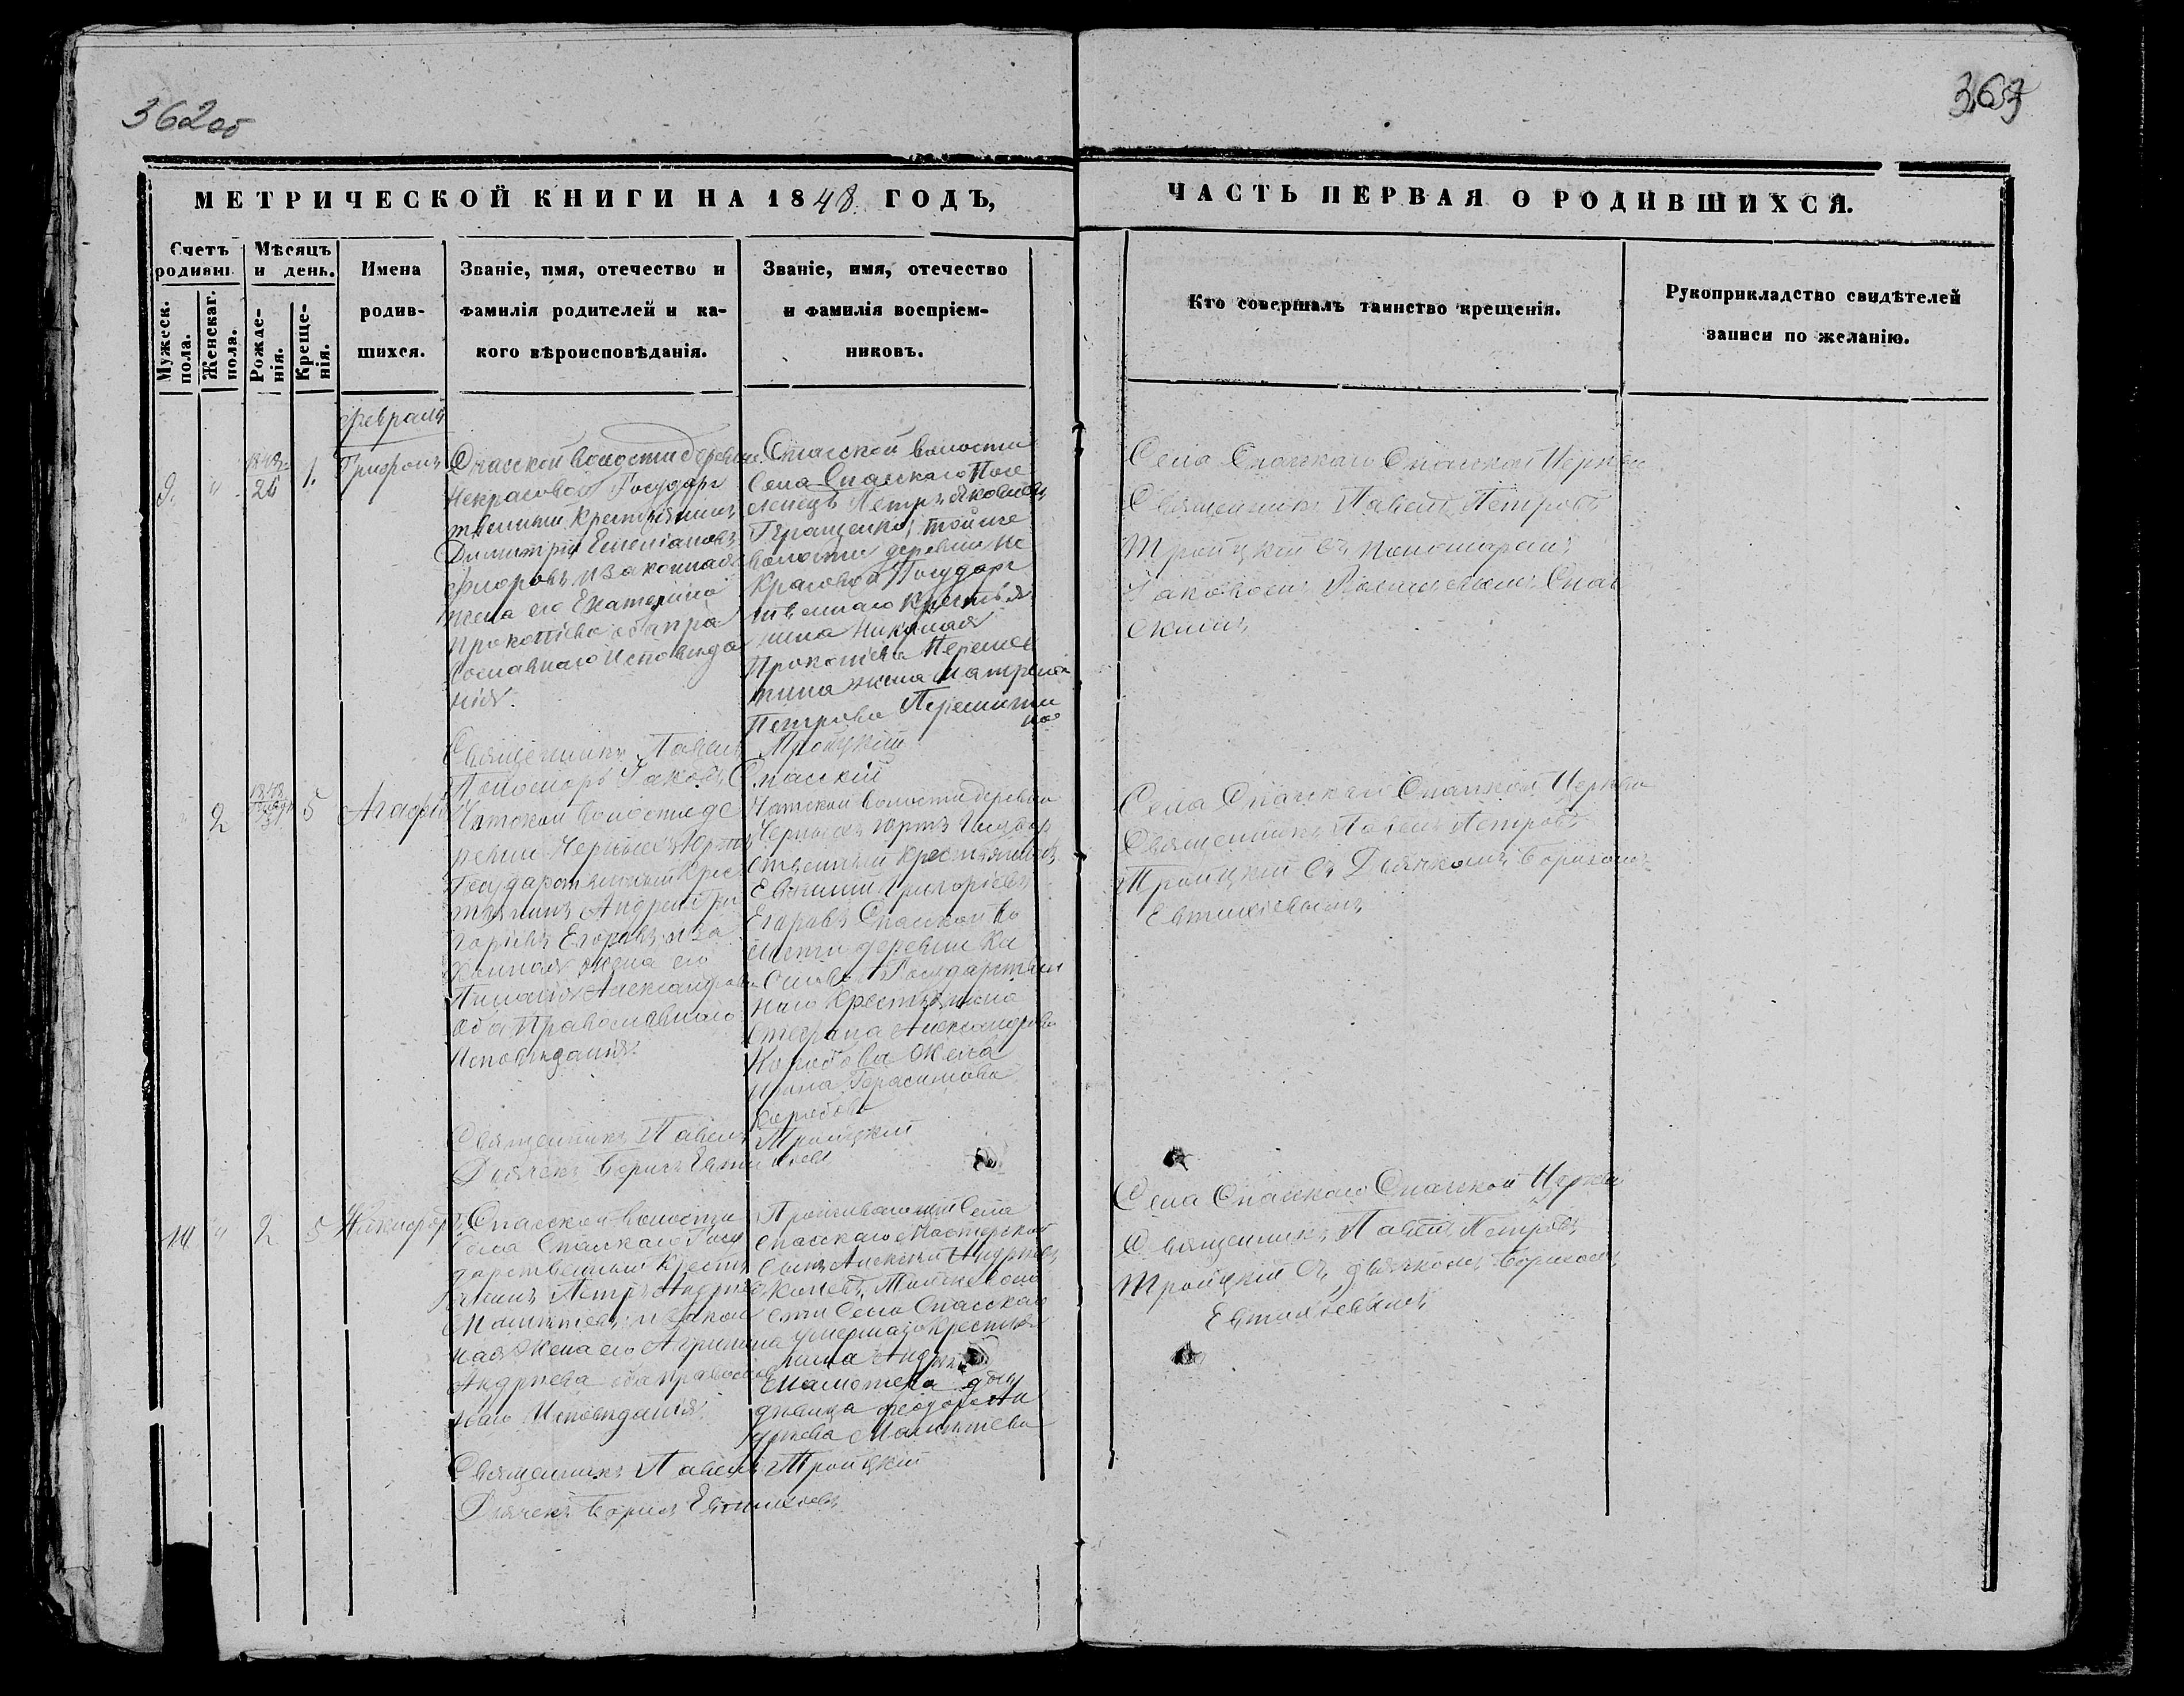 362об
363
МЕТРИЧЕСКОЙ КНИГИ НА 1848 ГОДЪ,
ЧАСТЬ ПЕРВАЯ О РОДИВШИХСЯ.
Счетъ родивш.
Мужеск. пола.
Женскаг. пола.
Мѣсяцъ и день.
Рожде-
нія.
Креще-
нія.
Имена
родив-
шихся.
Званіе, имя, отечество и
фамилія родителей и ка-
кого вѣроисповѣданія.
Званіе, имя, отечество
и фамилія воспріем-
никовъ.
Кто совершалъ таинство крещенія.
Рукоприкладство свидѣтелей
записи по желанію.
Февраль
9.
"
25
1.
Трифонъ
Спасской волости деревни
Некрасовой Государ
ственный крестьянинъ
Димитрій Емеліановъ
Флоровъ и законная
жена его Екатерина
Прокопіева оба пра
вославнаго исповѣда
нія.
Спасской волости
Села Спасскаго Посе
ленецъ Петръ Яковлевъ
Геращенко, той же
волости деревни Не
красовой Государ
ственнаго крестья
нина Николая
Прокопіева
жена Матрена
Петрова
Села Спасскаго Спасской Церкви
Священникъ Павелъ Петровъ
Троицкій съ пономаремъ
Іаковомъ Спас
скимъ
Священникъ Павелъ Троицкій
Пономарь Іаковъ Спасскій
"
2
31
5
Агафія
Чатской волости де
ревни Черныхъ Юртъ
Государственный крес
тьянинъ Андрей Гри
горіевъ Егоровъ и за
конная жена его
Александрова
оба Православнаго
Исповѣданія.
Чатской волости деревни
Черныхъ Юртъ Государ
ственный крестьянинъ
Евфимій Григоріевъ
Егоровъ Спасской во
лости деревни Ка
Государствен
наго крестьянина
Стефана Александрова
Коробова жена
Ирина Герасимова
Коробова
Села Спасскаго Спасской Церкви
Священникъ Павелъ Петровъ
Троицкій съ Дьячкомъ Борисомъ
Евтихіевымъ
Священникъ Павелъ Троицкій
Дьячекъ Борисъ Евтихіевъ
10
"
2
5
Никифоръ
Спасской волости
Села Спасскаго Госу
дарственный крестья
нинъ Петръ Андреевъ
и закон
ная жена его Агрипина
Андреева оба православ
наго Исповѣданія.
Проживающій Села
Спасскаго Мастерской
сынъ Алексѣй Андреевъ
Той же воло
сти Села Спасскаго
умершаго крестья
нина Андрея
дочь
дѣвица Феодора Ан
дреева
Села Спасскаго Спасской Церкви
Священникъ Павелъ Петровъ
Троицкій съ дьячкомъ Борисомъ
Евтихіевымъ
Священникъ Павелъ Троицкій
Дьячекъ Борисъ Евтихіевъ